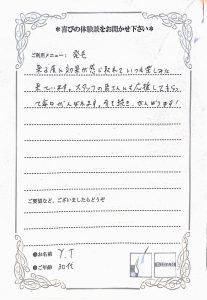 ＊喜びの体験談をお聞かせ下さい＊
ご利用メニュー： 発毛
来る度に効果が感じられていつも楽しみに
来ています。スタッフの皆さんにも応援してもらっ
て毎日がんばれます。今を続き、がんばります！
ご要望など、ございましたらどうぞ
●お名前 Y.T
●ご年齢 30代